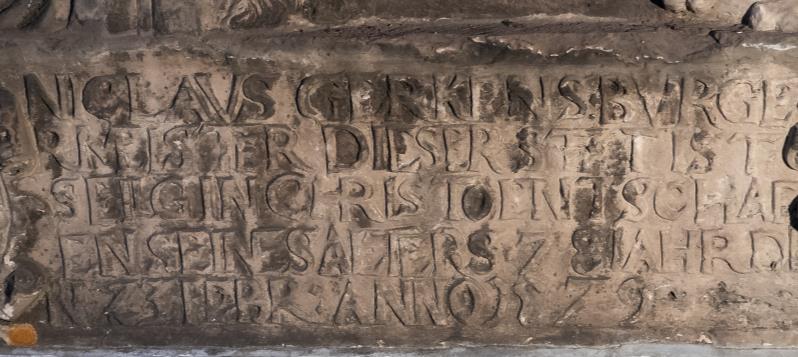 NICLAVS GERKENS BVRGE
RMEISTER DIESER STETT IST
SELIG IN CHRISTO ENTSCHLAF
EN SEIN ALTERS 78 IAHR DE
N 23 FEBR ANNO 1579